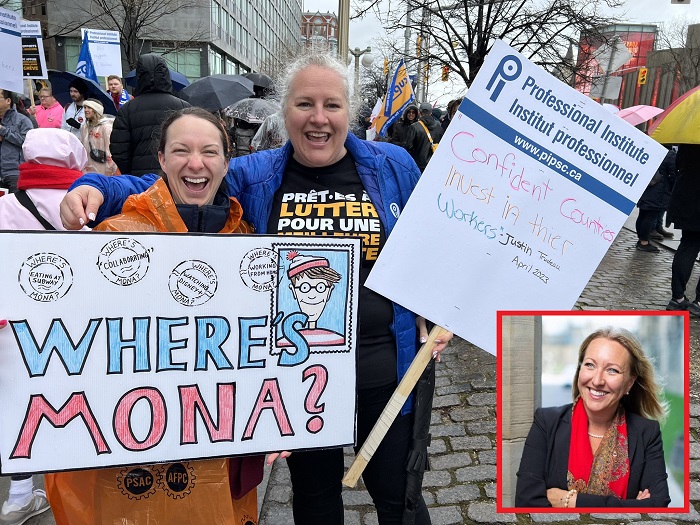 WHERE'S
EATING AT
SUBWAY
MONA?
WHERE'S
COLLABORATING
MONA?
WHERE'S
WATCHING
DISNEY+
MONA?
WHERE'S
WORKING
FROM HOME
MONA?
WHERE'S
MONA?
PSAC
AFPC
PRÊT·ES À
LUTTER
POUR UNE
MEILLEURE
Professional Institute
Institut professionnel
www.pipsc.ca
Confident Counties
Invest in thier
Workers"
Justin Trudeau
April 2023